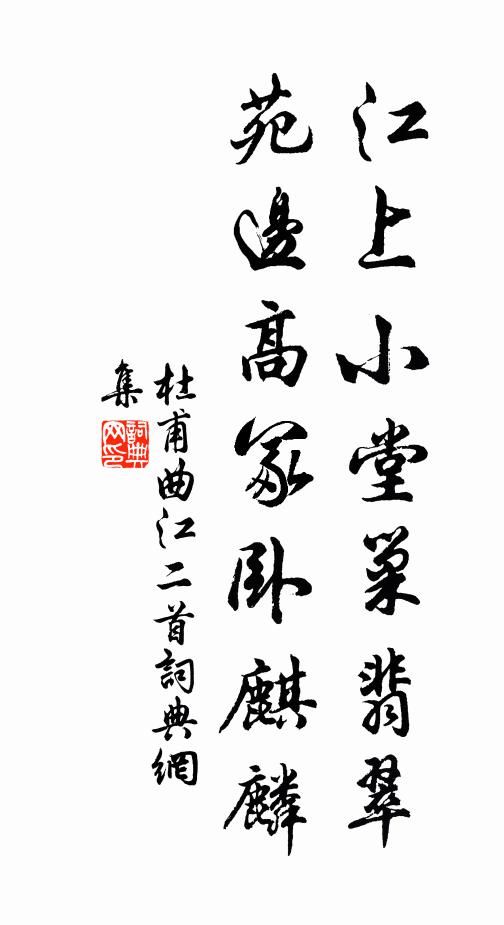 江上小堂巢翡翠
苑邊高冢臥麒麟
杜甫曲江二首詞典網
集
詞典
网印